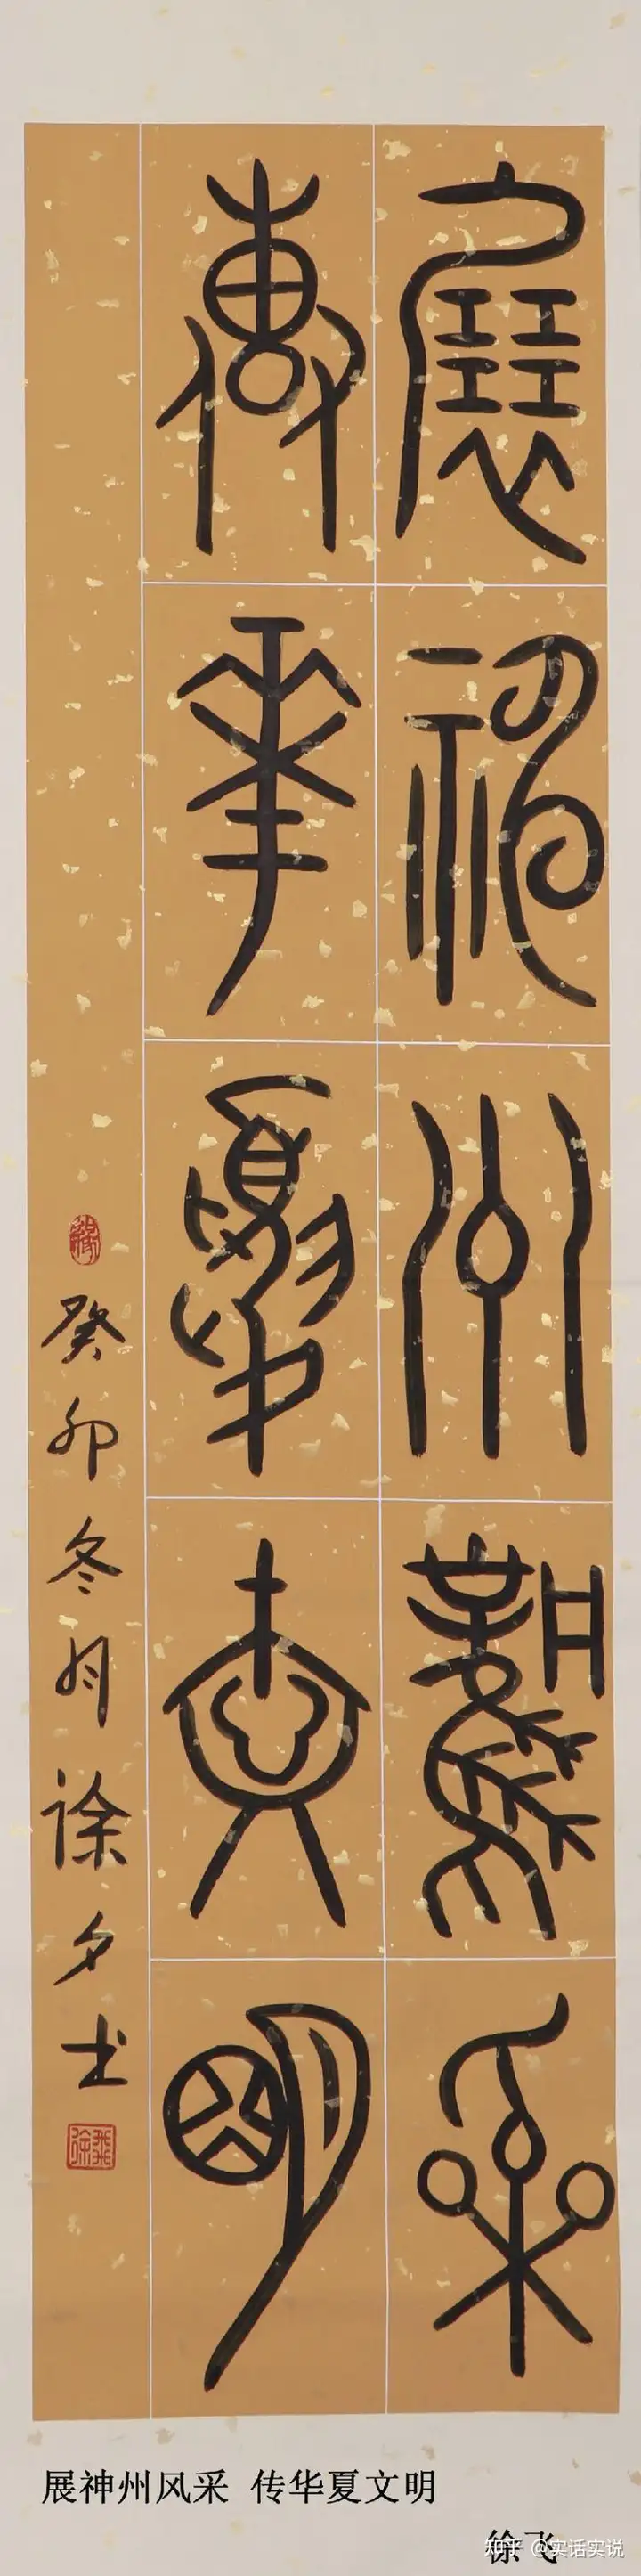 展神州風采
傳華夏文明
癸卯冬月徐夕士
徐飛
展神州风采 传华夏文明
徐飞
知乎 @实话实说